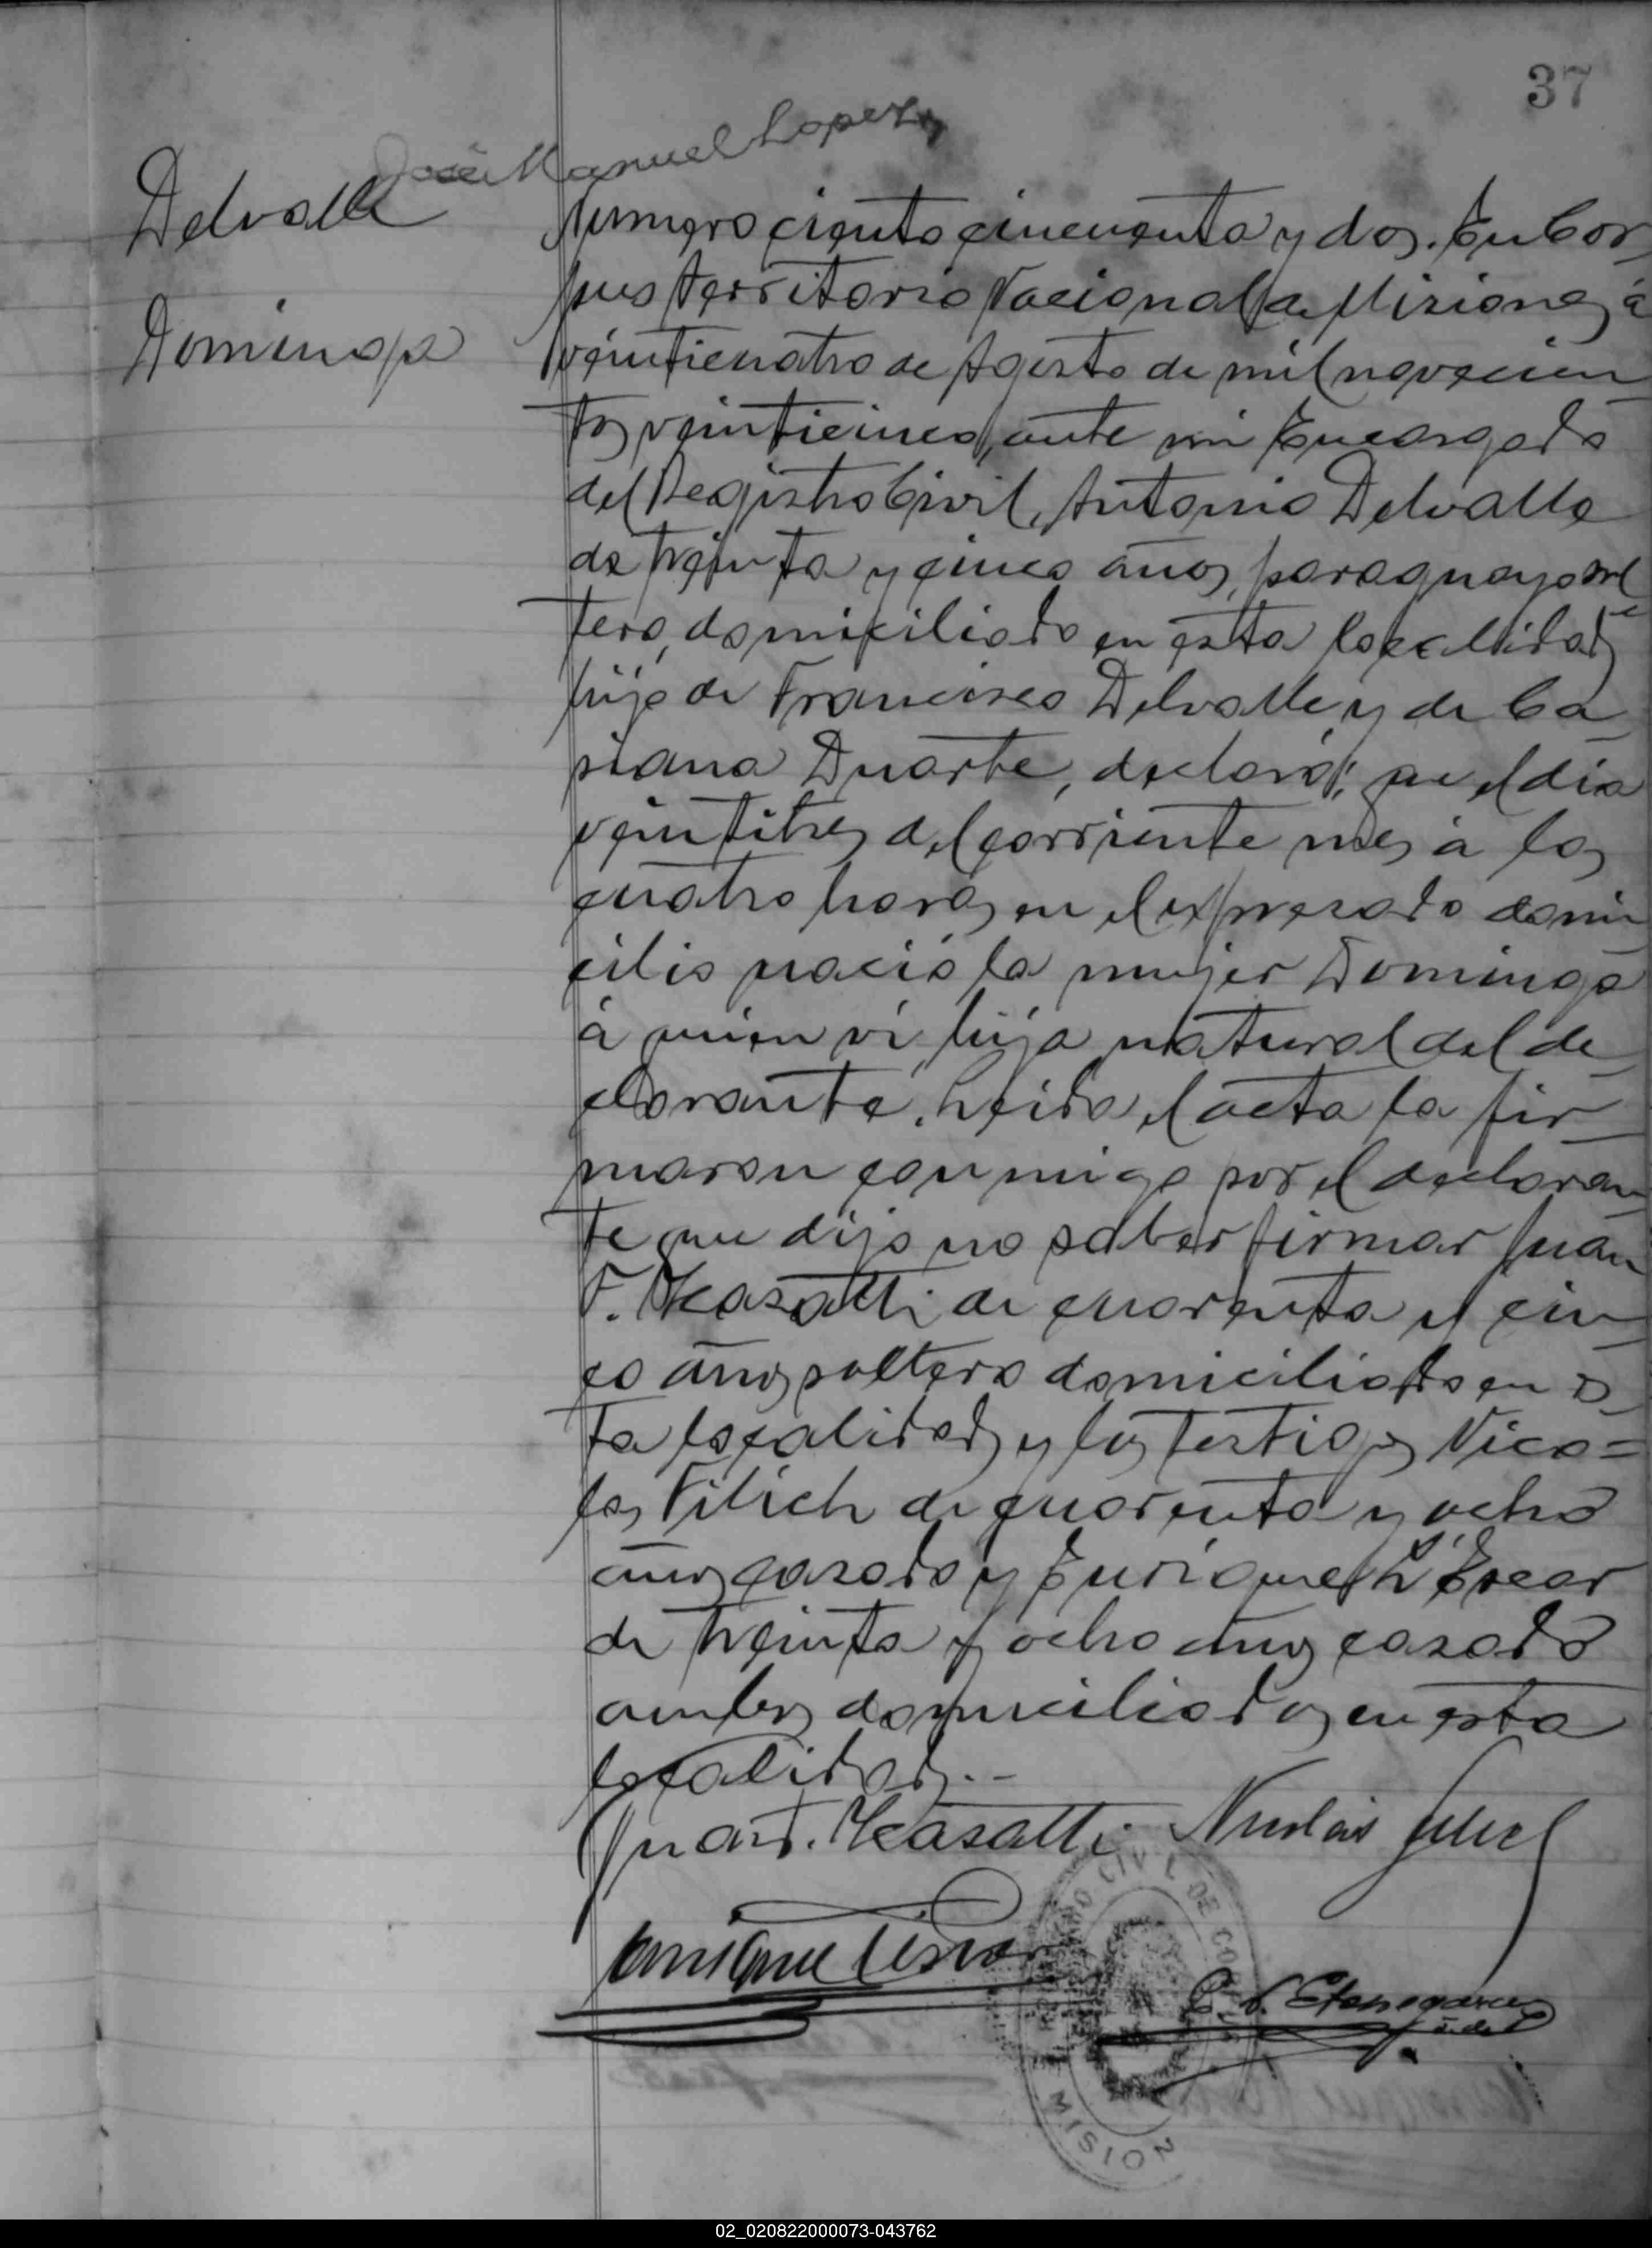 37
José Manuel Lopez
Delvalle
Dominga
Numero ciento cincuenta y dos. En Cor
pus Territorio Nacional de Misiones á
veinticuatro de Agosto de mil novecien
tos veinticinco, ante mi Encargado
del Registro Civil, Antonio Delvalle
de treinta y cinco años, paraguayo sol
tero, domiciliado en esta localidad
hijo de Francisco Delvalle y de Ca
siana Duarte, declaró; que el dia
veintitres del corriente mes á las
cuatro horas en el expresado domi
cilio nació la mujer Dominga
á quien vi hija natural del de
clarante. Leida el acta la fir
maron conmigo por el declaran
te que dijo no saber firmar Juan
F. Kasatti de cuarenta y cin
co años soltero domiciliado en es
ta localidad y los testigos Nico=
las Filich de cuarenta y ocho
años casado y Enrique Escar
de treinta y ocho años casado
ambos domiciliados en esta
localidad.-
Juan F. Kasatti Nicolás
Enrique
REGISTRO CIVIL DE CORPUS
MISIONES
02_020822000073-043762